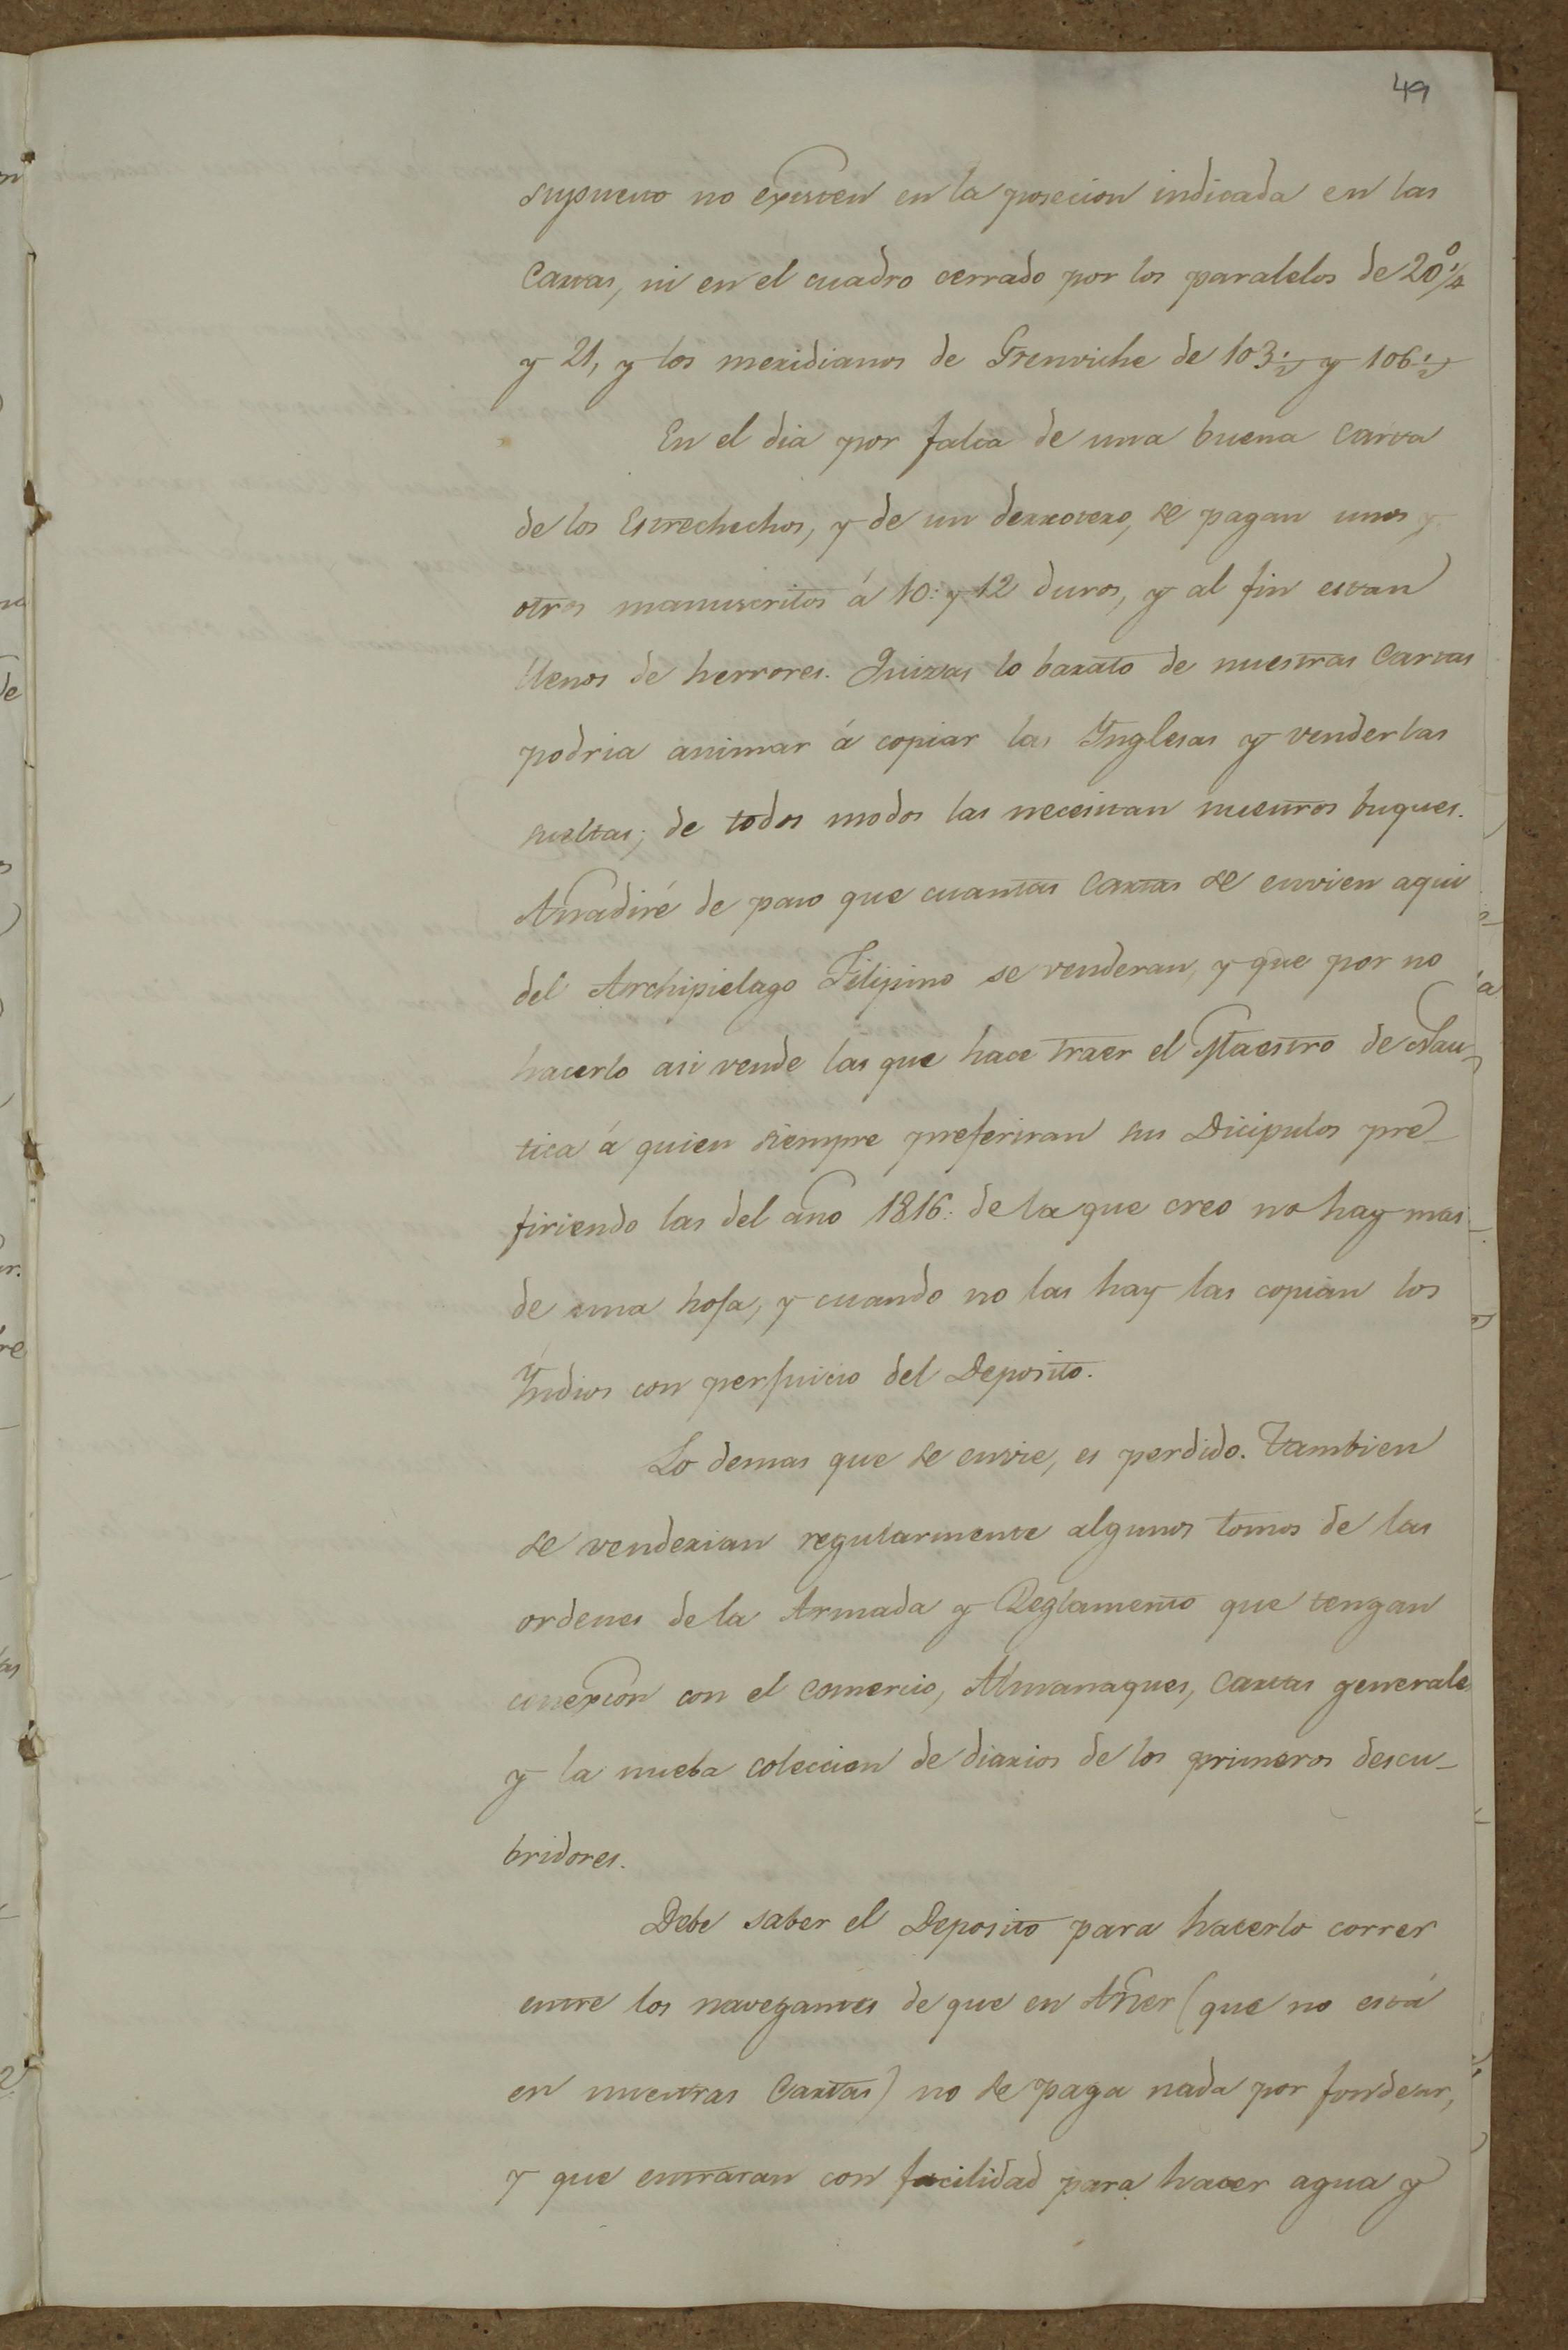 49
supuesto no existen en la posecion indicada en las
Cartas, ni en el cuadro cerrado por los paralelos de 20°1/4
y 21, y los meridianos de Grenviche de 103 1/2 y 106 1/2
En el dia por falta de una buena Carta
de los Estrechechos, y de un derrotero, se pagan unos y
otros manuscritos á 10: y 12 duros, y al fin estan
llenos de herrores. Quizas lo barato de nuestras Cartas
podria animar á copiar las Ynglesas y venderlas
sueltas; de todos modos las necesitan nuestros buques.
Añadiré de paso que cuantas Cartas se envien aqui
del Archipielago Filipino se venderan, y que por no
hacerlo asi vende las que hace traer el Maestro de Nau-
tica á quien siempre preferiran sus Dicipulos pre-
firiendo las del año 1816: de la que creo no hay mas
de una hoja, y cuando no las hay las copian los
Yndios con perjuicio del Deposito.
Lo demas que se envie, es perdido. Tambien
se venderian regularmente algunos tomos de las
ordenes de la Armada y Reglamento que tengan
conexion con el comercio, Almanaques, Cartas generales
y la nueba coleccion de diarios de los primeros descu-
bridores.
Debe saber el Deposito para hacerlo correr
entre los navegantes de que en Añer (que no está
en nuestras Cartas) no se paga nada por fondear,
y que entraran con facilidad para hacer agua y